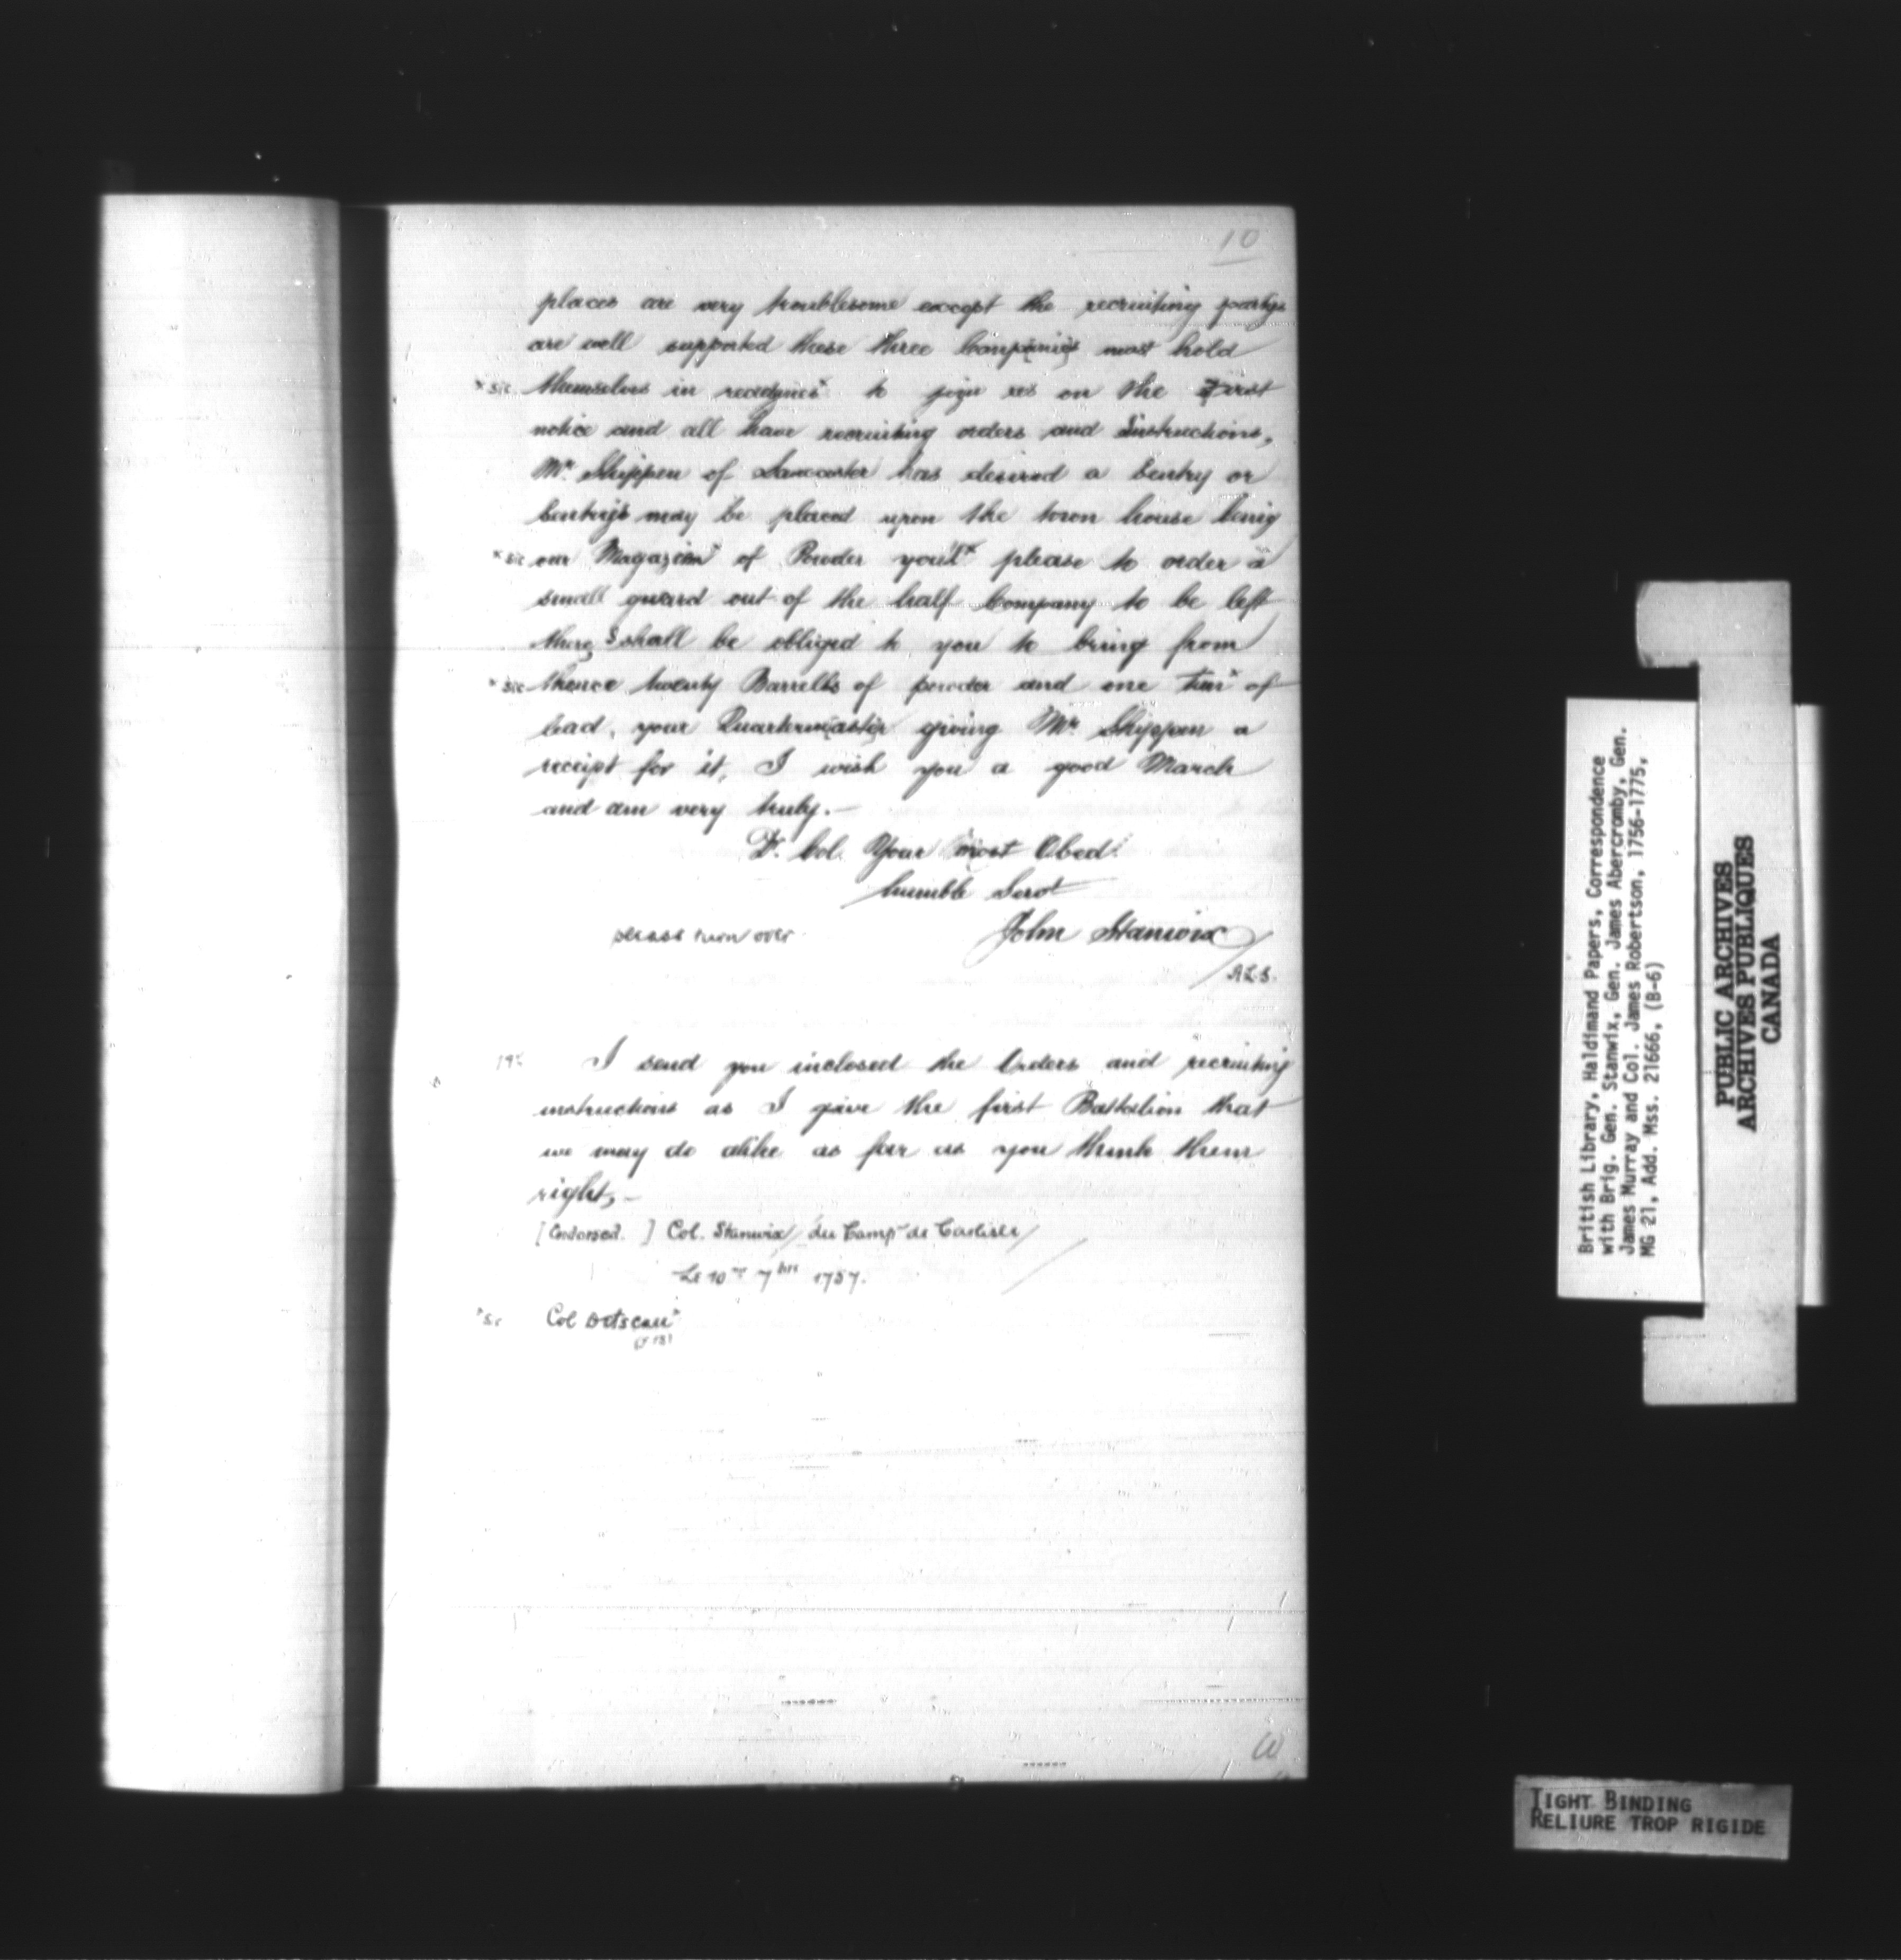 10
places are very troublesome except the recruiting partys
are well supported these three Companies must hold
* sic themselves in readyness* to join us on the first
notice and all have recruiting orders and Instructions,
Mr. Shippen of Lancaster has desired a Sentry or
Sentrys may be placed upon the town house being
* sic our Magazein* of Powder you'l* please to order a
small guard out of the half Company to be left
there, I shall be obliged to you to bring from
* sic thence twenty Barrells of powder and one Tun* of
lead, your Quartermaster giving Mr. Shippen a
receipt for it, I wish you a good March
and am very truly.—
Dr. Col. Your most Obedt.
humble Servt
please turn over
John Stanwix
A.L.S.
I send you inclosed the Orders and recruiting
instructions as I give the first Battalion that
we may do alike as far as you think them
right,—
[Endorsed.] Col. Stanwix / du Camp de Carlisle /
Le 10me 7bre 1757.
* sic Col
British Library, Haldimand Papers, Correspondence
with Brig. Gen. Stanwix, Gen. James Abercromby, Gen.
James Murray and Col. James Robertson, 1756-1775,
MG 21, Add. Mss. 21666, (B-6)
PUBLIC ARCHIVES
ARCHIVES PUBLIQUES
CANADA
TIGHT BINDING
RELIURE TROP RIGIDE